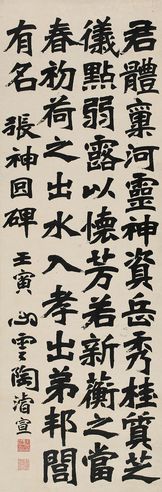 君體稟河靈神資岳秀桂質芝
儀點弱露以懷芳若新蘅之當
春初荷之出水入孝出弟邦閭
有名 張神囧碑 壬寅 心雲陶濬宣